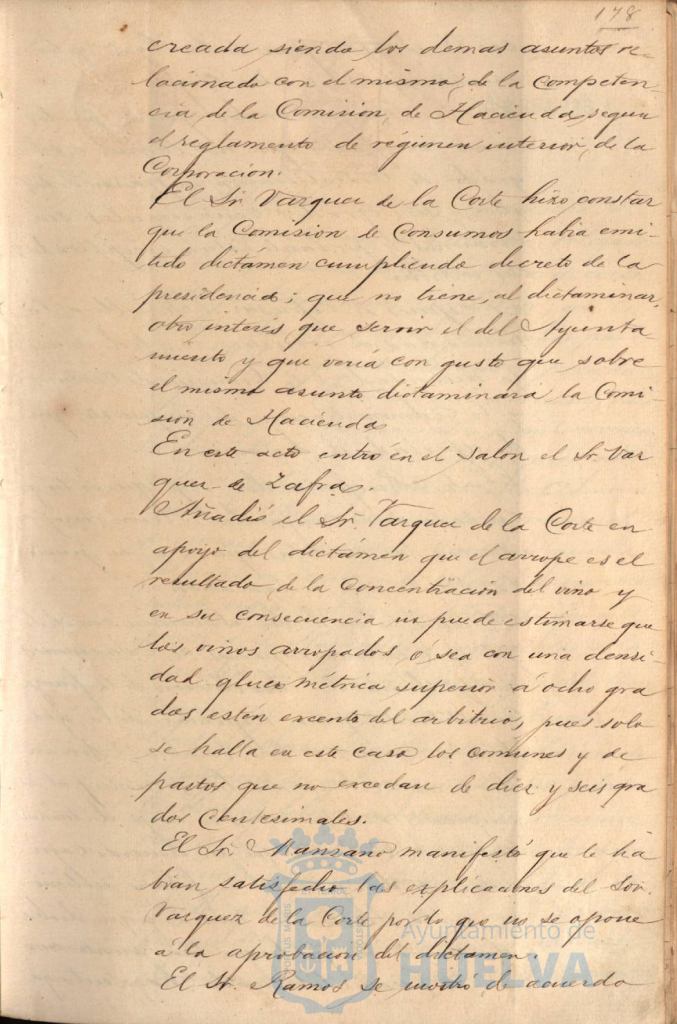 178
creada siendo los demas asuntos re-
lacionado con el mismo, de la competen-
cia, de la Comisión, de Hacienda, segun
el reglamento de régimen interior, de la
Corporación.
El Sr. Varquez de la Corte hizo constar
que la Comision de Consumos habia emi-
tido dictámen cumpliendo decreto de la
presidencia; que no tiene, al dictaminar,
otro interés que servir el del Ayunta-
miento y que veria con gusto que sobre
el mismo asunto dictaminara la Comi-
sión de Hacienda
En este acto entró en el salon el Sr. Var
quez de Zafra.
Añadió el Sr. Varquez de la Corte en
apoyo del dictámen que el arrope es el
resultado de la concentración del vino y
en su consecuencia no puede estimarse que
los vinos arropados ó sea con una densi-
dad glucométrica superior á ocho gra
dos estén excento del arbitrio, pues solo
se halla en este caso los comunes y de
pastos que no excedan de diez y seis gra
dos centesimales.
El Sr. Manzano manifestó que le há
bian satisfecho las explicaciones del Sor.
Varquez de la Corte por lo que no se opone
á la aprobacion del dictamen.
El Sr. Ramos se mostro de acuerdo
Ayuntamiento de
HUELVA